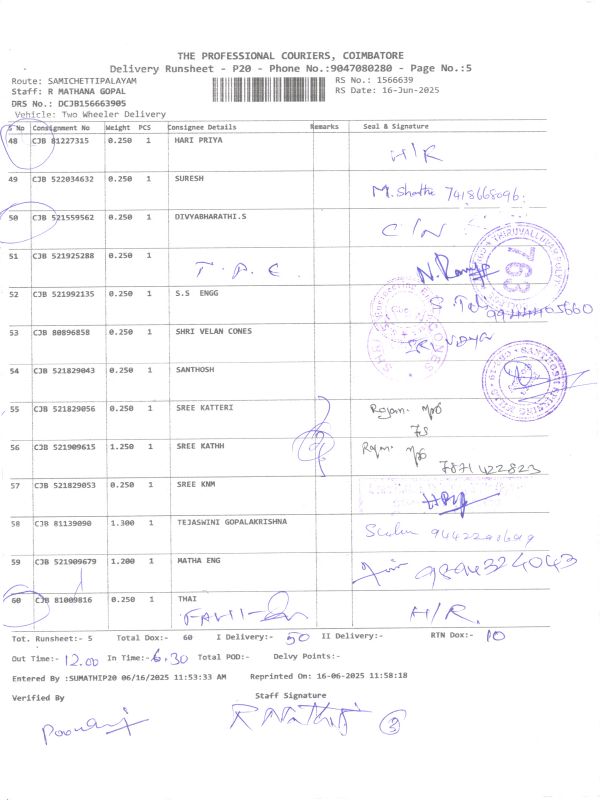 THE PROFESSIONAL COURIERS, COIMBATORE
Delivery Runsheet - P20 - Phone No.:9047080280 - Page No.:5
Route: SAMICHETTIPALAYAM RS No.: 1566639
Staff: R MATHANA GOPAL RS Date: 16-Jun-2025
DRS No.: DCJB156663905
Vehicle: Two Wheeler Delivery
S No Consignment No Weight PCS Consignee Details Remarks Seal & Signature
48 CJB 81227315 0.250 1 HARI PRIYA H/R
49 CJB 522034632 0.250 1 SURESH 7418668096
50 CJB 521559562 0.250 1 DIVYABHARATHI.S C/N
51 CJB 521925288 0.250 1 T.P.E.
52 CJB 521992135 0.250 1 S.S ENGG
53 CJB 80896858 0.250 1 SHRI VELAN CONES
54 CJB 521829043 0.250 1 SANTHOSH
55 CJB 521829056 0.250 1 SREE KATTERI
56 CJB 521909615 1.250 1 SREE KATHH
7871422823
57 CJB 521829053 0.250 1 SREE KNM
58 CJB 81139090 1.300 1 TEJASWINI GOPALAKRISHNA
59 CJB 521909679 1.200 1 MATHA ENG 9894324043
60 CJB 81009816 0.250 1 THAI H/R.
Tot. Runsheet:- 5 Total Dox:- 60 I Delivery:- 50 II Delivery:- RTN Dox:- 10
Out Time:- 12.00 In Time:- 6.30 Total POD:- Delvy Points:-
Entered By :SUMATHIP20 06/16/2025 11:53:33 AM Reprinted On: 16-06-2025 11:58:18
Verified By Staff Signature